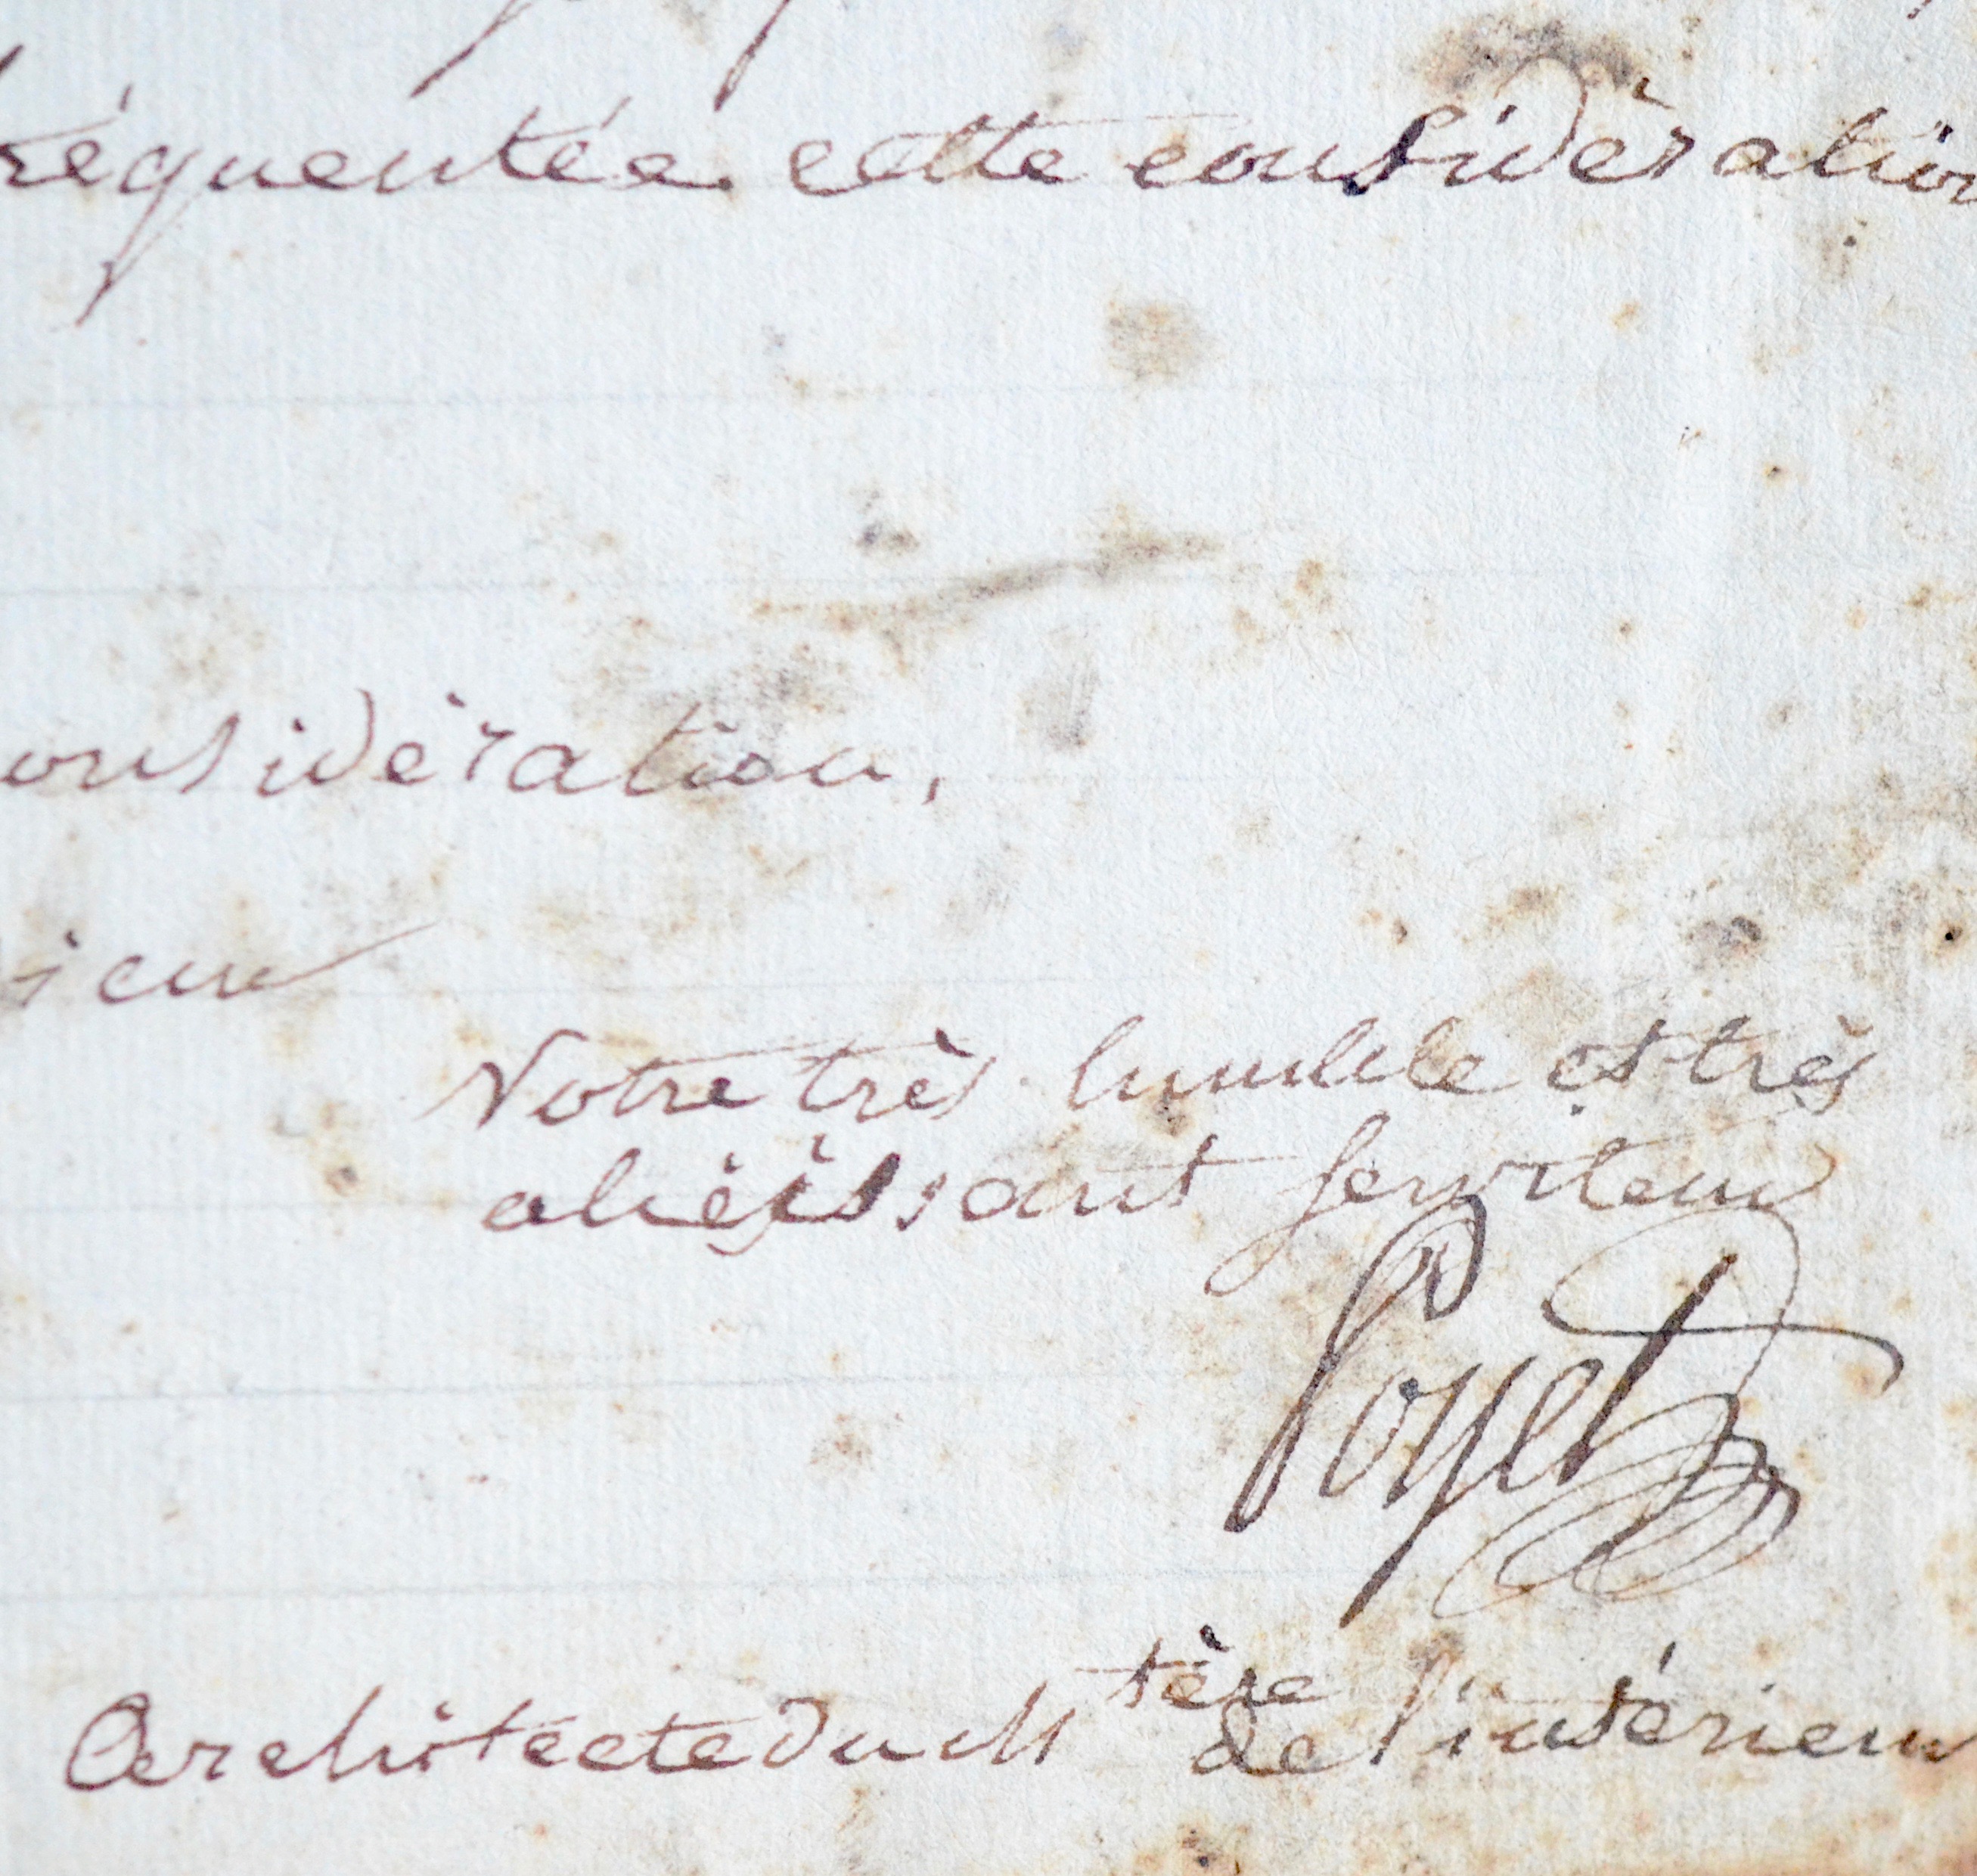 réquentée. cette considèration
onsidèration,
ieur
Votre très humble et très
obéissant serviteur
Poyet
Architecte du M tère de l'intérieur